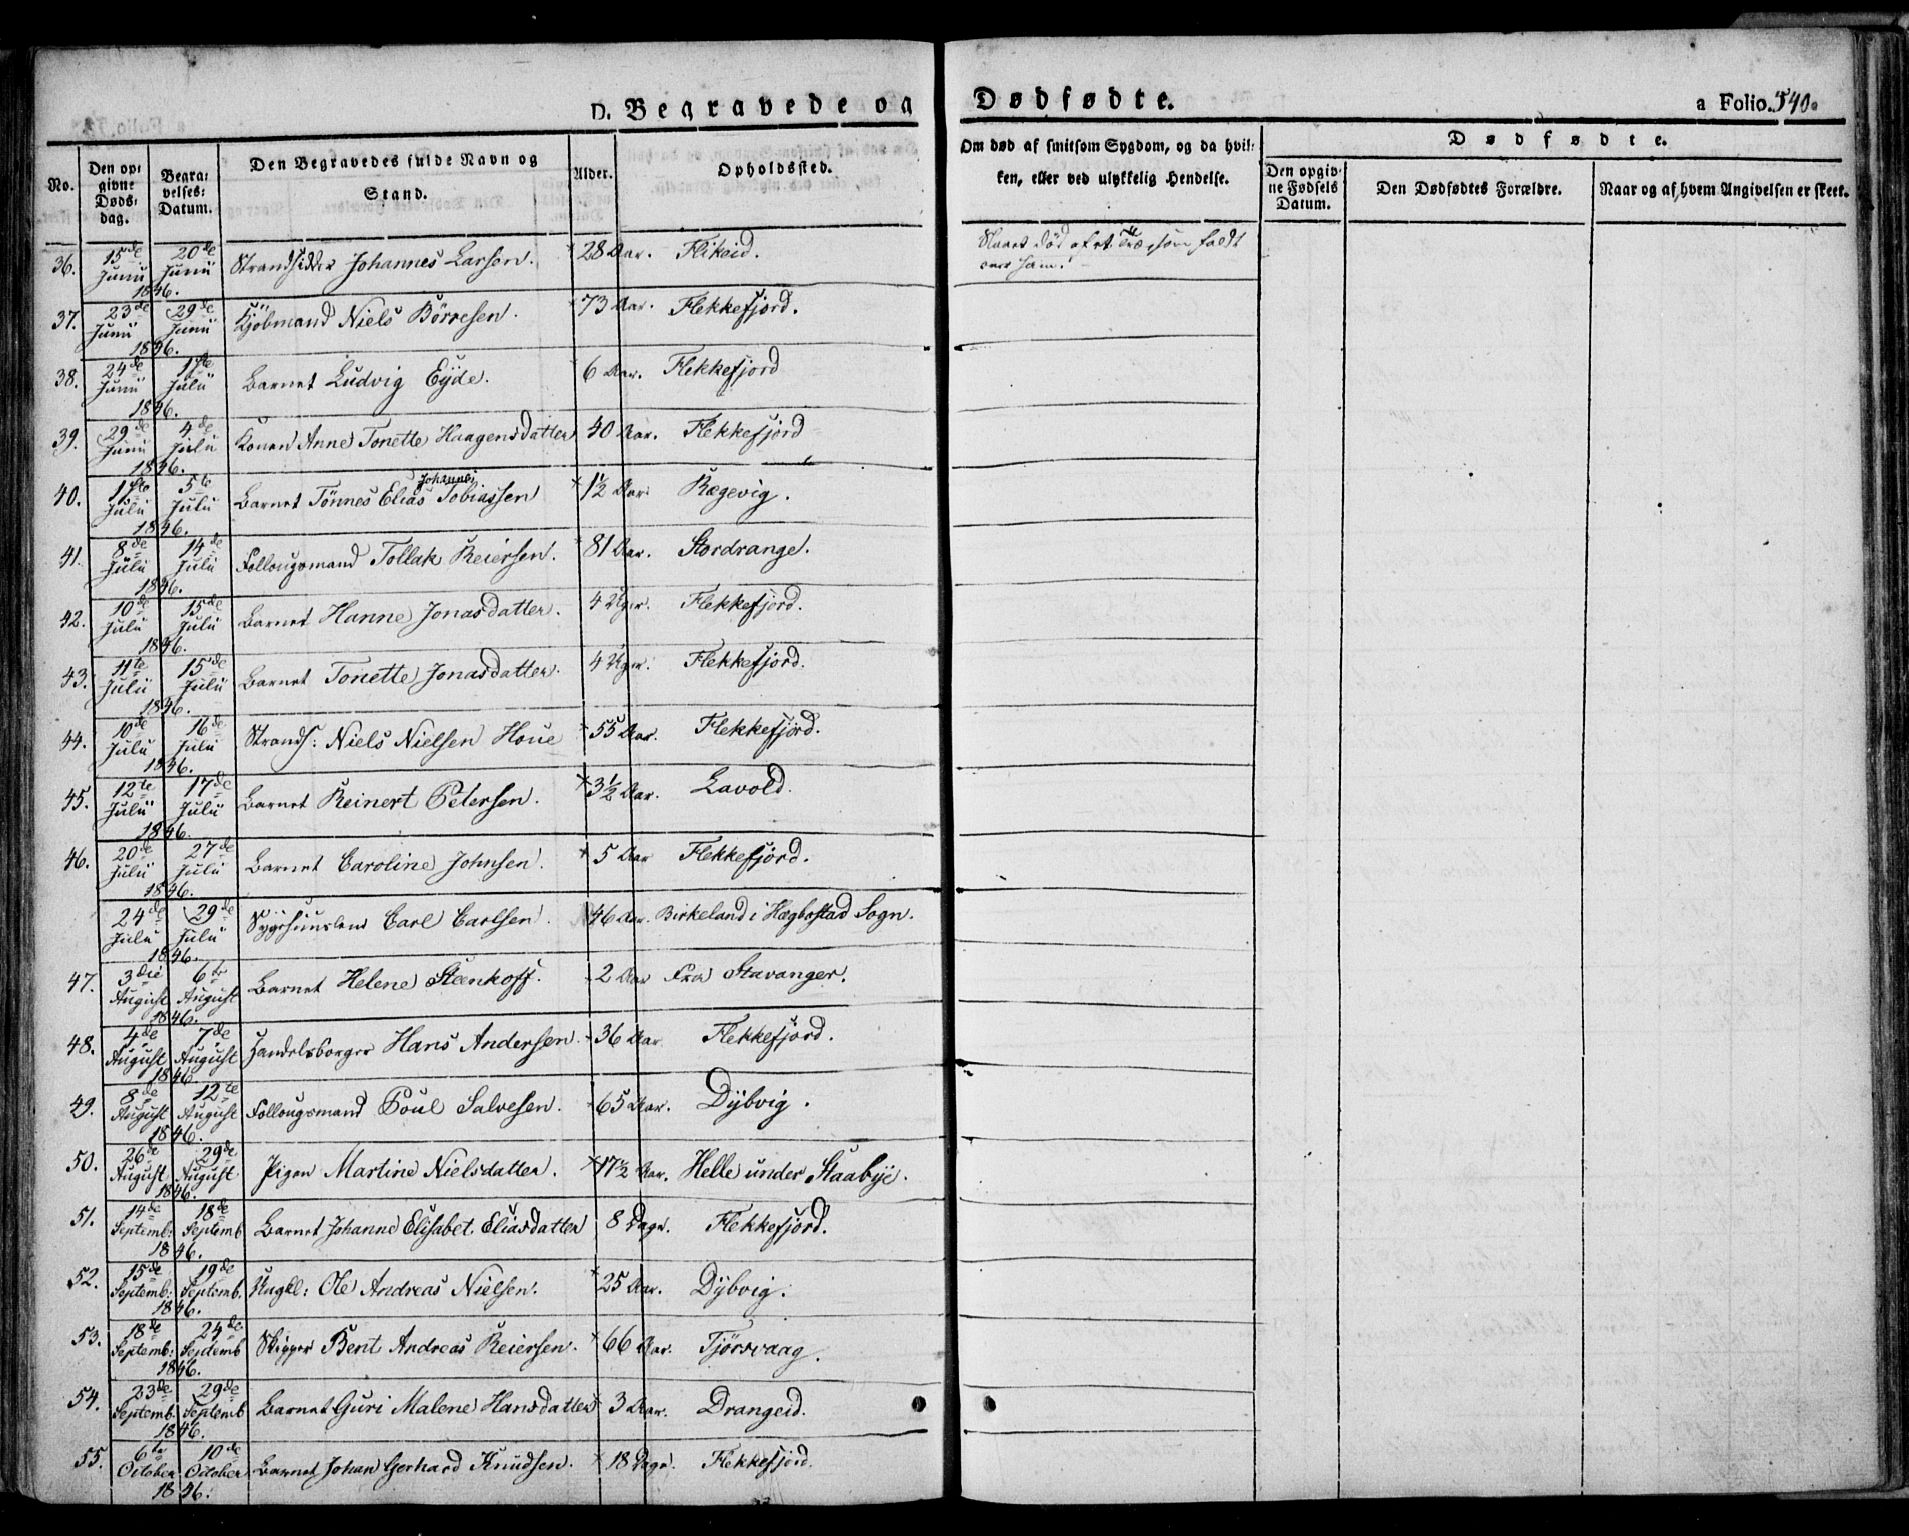 D. Begravede og Dødfødte. a Folio. 540.
No. Den opgivne Dødsdag. Begravelses-Datum. Den Begravedes fulde Navn og Stand. Alder. Opholdssted. Om død af smitsom Sygdom, og da hvilken, eller ved ulykkelig Hendelse. Dødfødte.
Den opgivne Fødsels Datum. Den Dødfødtes Forældre. Naar og af hvem Angivelsen er skeet.
36. 15de Junii 20de Junii 1846. Strandsidder Johannes Larsen. 28 Aar. Flikeid. død af et Træ, som faldt over ham.
37. 23de Junii 29de Junii 1846. Kjöbmand Niels Börresen. 73 Aar. Flekkefjord.
38. 24de Junii 1ste Julii 1846. Barnet Ludvig Eyde. 6 Aar. Flekkefjord
39. 29de Junii 4de Julii 1846. Konen Anne Tonette Haagensdatter 40 Aar. Flekkefjord
40. 1ste Julii 5te Julii 1846. Barnet Tönnes Elias Johannes Tobiassen 1½ Aar. Rægevig.
41. 8de Julii 14de Julii 1846. Follougsmand Tollak Reiersen. 81 Aar. Stordrange.
42. 10de Julii 15de Julii 1846. Barnet Hanne Jonasdatter. 4 Uger. Flekkefjord.
43. 11te Julii 15de Julii 1846. Barnet Tonette Jonasdatter. 4 Uger. Flekkefjord.
44. 10de Julii 16de Julii 1846. Strands: Niels Nielsen Houe 55 Aar. Flekkefjord.
45. 12te Julii 17de Julii 1846. Barnet Reinert Petersen. 3½ Aar. Lavold.
46. 20de Julii 27de Julii 1846. Barnet Caroline Johnsen. 5 Aar Flekkefjord.
24de Julii 29de Julii 1846. Carl Carlsen. 46 Aar. Birkeland i Hægbostad Sogn.
47. 3die August 6te August 1846. Barnet Helene Steenkoff. 2 Aar Fra Stavanger.
48. 4de August 7de August 1846. Handelsborger Hans Andersen. 36 Aar Flekkefjord.
49. 8de August 12te August 1846. Follougsmand Poul Salvesen. 65 Aar. Dybvig.
50. 26de August 29de August 1846. Pigen Martine Nielsdatter. 17½ Aar. Helle under Staabye.
51. 14de Septemb: 18de Septemb 1846. Barnet Johanne Elisabet Eliasdatter 8 Dage. Flekkefjord.
52. 15de Septemb: 19de Septemb. 1846. Ungkl: Ole Andreas Nielsen. 25 Aar. Dybvig.
53. 18de Septemb: 24de Septemb 1846. Skipper Bent Andreas Reiersen. 66 Aar. Tjörsvaag.
54. 23de Septemb: 29de Septemb 1846. Barnet Guri Malene Hansdatter 3 Aar. Drangeid.
55. 6te October 10de October 1846. Barnet Johan Gerhard Knudsen. 18 Dage. Flekkefjord.